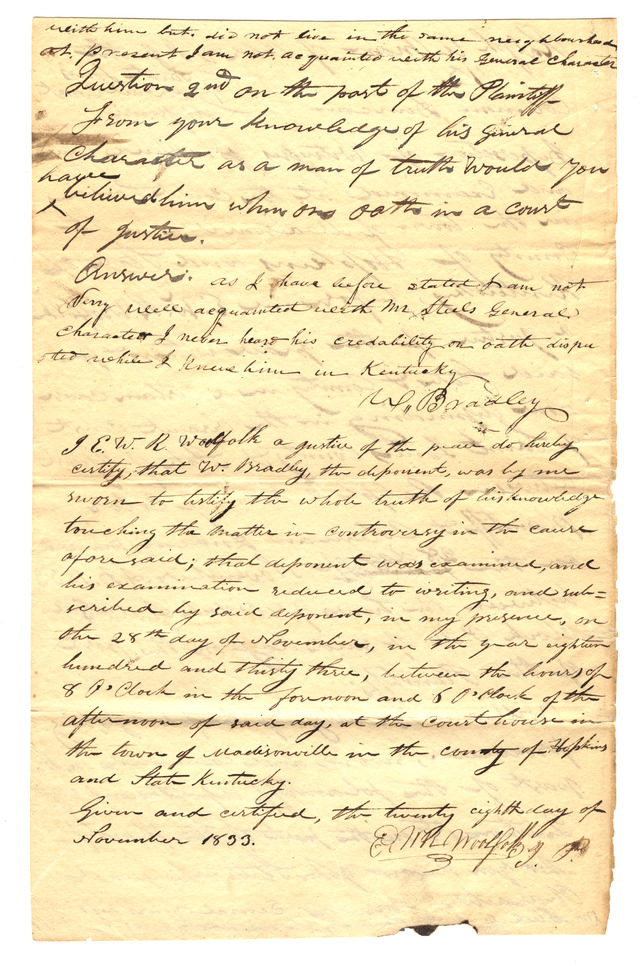 with him but did not live in the same neighbourhood
at present I am not acquainted with his General Character
Question 2nd on the part of the Plaintiff
From your knowledge of his General
Character as a man of truth Would You
have
believed him when on oath in a court
of Justice.
Answer: as I have before stated I am not
Very well acquainted with Mr Steels General
character I never heard his credability on oath dispu
ted while I Knew him in Kentucky
W. Bradley
I E. W. R. Woolfolk a justice of the peace do hereby
certify, that W. Bradley, the deponent, was by me
sworn to testify the whole truth of his knowledge
touching the matter in controversy in the cause
afore said; that deponent was examined, and
his examination reduced to writing, and sub=
scribed by said deponent, in my presence, on
the 28th day of November, in the year eighteen
hundred and thirty three, between the hours of
8 O'Clock in the forenoon and 6 O'Clock of the
afternoon of said day, at the Court house in
the town of Madisonville in the county of Hopkins
and State Kentucky.
Given and certified, this twenty eighth day of
November 1833.
E. W R Woolfolk J. P.